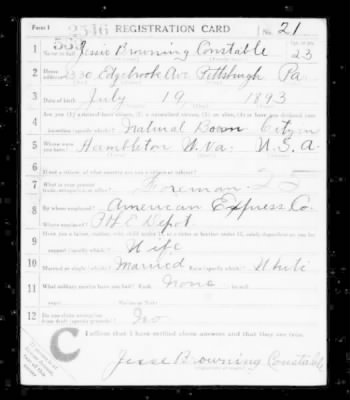 Form 1 2546 REGISTRATION CARD No. 21
1 Jessie Browning Constable 23
2 Home address 2330 Edgebrook Ave Pittsburgh Pa.
3 Date of birth July 19 1893
4 Are you (1) a natural-born citizen, (2) a naturalized citizen, (3) an alien, (4) or have you declared your
intention (specify which)? Natural Born Citizen
5 Where were you born? Hambleton W. Va. U.S.A.
6 If not a citizen, of what country are you a citizen or subject?
7 What is your present trade, occupation, or office? Foreman 25
8 By whom employed? American Express Co.
Where employed? Depot
9 Have you a father, mother, wife, child under 12, or a sister or brother under 12, solely dependent on you for
support (specify which)? Wife
10 Married or single (which)? Married Race (specify which)? White
11 What military service have you had? Rank None branch
years Nation or State
12 Do you claim exemption from draft (specify grounds)? No
I affirm that I have verified above answers and that they are true.
C
Jesse Browning Constable